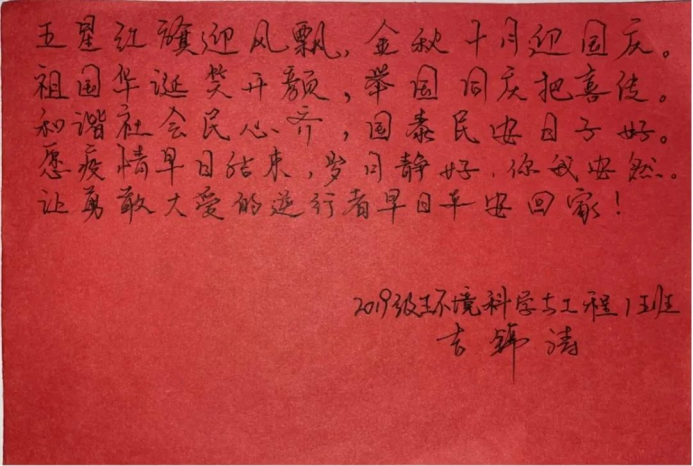 五星红旗迎风飘,金秋十月迎国庆。
祖国华诞笑开颜,举国同庆把喜传。
和谐社会民心齐,国泰民安日子好。
愿疫情早日结束,岁月静好,你我安然。
让勇敢大爱的逆行者早日平安回家!
2019级环境科学与工程1班
吉锦涛